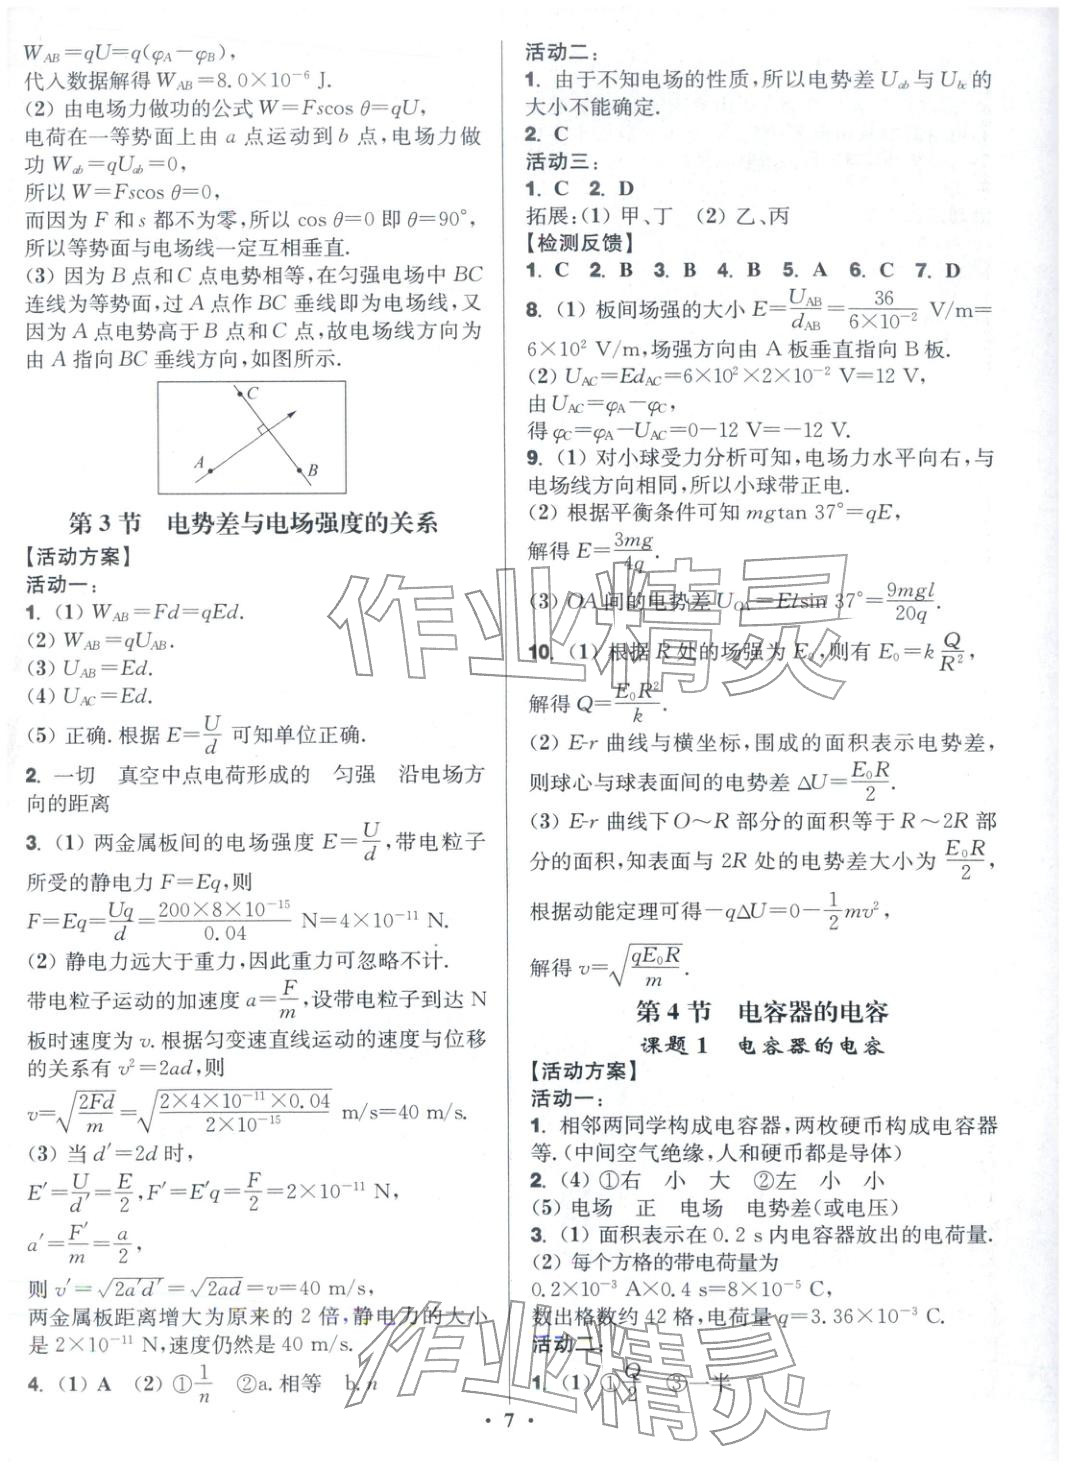 W_AB=qU=q(φ_A-φ_B),
代入数据解得 W_AB=8.0×10⁻⁶ J.
(2) 由电场力做功的公式 W=Fscos θ=qU,
电荷在一等势面上由 a 点运动到 b 点,电场力做
功 W_ab=qU_ab=0,
所以 W=Fscos θ=0,
而因为 F 和 s 都不为零,所以 cos θ=0 即 θ=90°,
所以等势面与电场线一定互相垂直.
(3) 因为 B 点和 C 点电势相等,在匀强电场中 BC
连线为等势面,过 A 点作 BC 垂线即为电场线,又
因为 A 点电势高于 B 点和 C 点,故电场线方向为
由 A 指向 BC 垂线方向,如图所示.
C
A
B
第 3 节 电势差与电场强度的关系
【活动方案】
活动一:
1. (1) W_AB=Fd=qEd.
(2) W_AB=qU_AB.
(3) U_AB=Ed.
(4) U_AC=Ed.
(5) 正确.根据 E=U/d 可知单位正确.
2. 一切 真空中点电荷形成的 匀强 沿电场方
向的距离
3. (1) 两金属板间的电场强度 E=U/d,带电粒子
所受的静电力 F=Eq,则
F=Eq=Uq/d=200×8×10⁻¹⁵/0.04 N=4×10⁻¹¹ N.
(2) 静电力远大于重力,因此重力可忽略不计.
带电粒子运动的加速度 a=F/m,设带电粒子到达 N
板时速度为 v.根据匀变速直线运动的速度与位移
的关系有 v²=2ad,则
v=√(2Fd/m)=√(2×4×10⁻¹¹×0.04/2×10⁻¹⁵) m/s=40 m/s.
(3) 当 d′=2d 时,
E′=U/d′=E/2,F′=E′q=F/2=2×10⁻¹¹ N,
a′=F′/m=a/2,
则 v′=√(2a′d′)=√(2ad)=v=40 m/s,
两金属板距离增大为原来的 2 倍,静电力的大小
是 2×10⁻¹¹ N,速度仍然是 40 m/s.
4. (1) A (2) ①1/n ②a.相等 b.n
活动二:
1. 由于不知电场的性质,所以电势差 U_ab与 U_bc的
大小不能确定.
2. C
活动三:
1. C 2. D
拓展:(1) 甲、丁 (2) 乙、丙
【检测反馈】
1. C 2. B 3. B 4. B 5. A 6. C 7. D
8. (1) 板间场强的大小 E=U_AB/d_AB=36/6×10⁻² V/m=
6×10² V/m,场强方向由 A 板垂直指向 B 板.
(2) U_AC=Ed_AC=6×10²×2×10⁻² V=12 V,
由 U_AC=φ_A-φ_C,
得 φ_C=φ_A-U_AC=0-12 V=-12 V.
9. (1) 对小球受力分析可知,电场力水平向右,与
电场线方向相同,所以小球带正电.
(2) 根据平衡条件可知 mgtan 37°=qE,
解得 E=3mg/4q.
(3) OA 间的电势差 U_OA=Elsin 37°=9mgl/20q.
10. (1) 根据 R 处的场强为 E₀,则有 E₀=k Q/R²,
解得 Q=E₀R²/k.
(2) E-r 曲线与横坐标,围成的面积表示电势差,
则球心与球表面间的电势差 ΔU=E₀R/2.
(3) E-r 曲线下 O~R 部分的面积等于 R~2R 部
分的面积,知表面与 2R 处的电势差大小为 E₀R/2,
根据动能定理可得-qΔU=0-1/2mv²,
解得 v=√(qE₀R/m).
第 4 节 电容器的电容
课题 1 电容器的电容
【活动方案】
活动一:
1. 相邻两同学构成电容器,两枚硬币构成电容器
等.(中间空气绝缘,人和硬币都是导体)
2. (4) ①右 小 大 ②左 小 小
(5) 电场 正 电场 电势差(或电压)
3. (1) 面积表示在 0.2 s 内电容器放出的电荷量.
(2) 每个方格的带电荷量为
0.2×10⁻³ A×0.4 s=8×10⁻⁵ C,
数出格数约 42 格,电荷量 q=3.36×10⁻³ C.
活动二:
1. (1) ①Q/2 ③一半
• 7 •
作业精灵
作业精灵